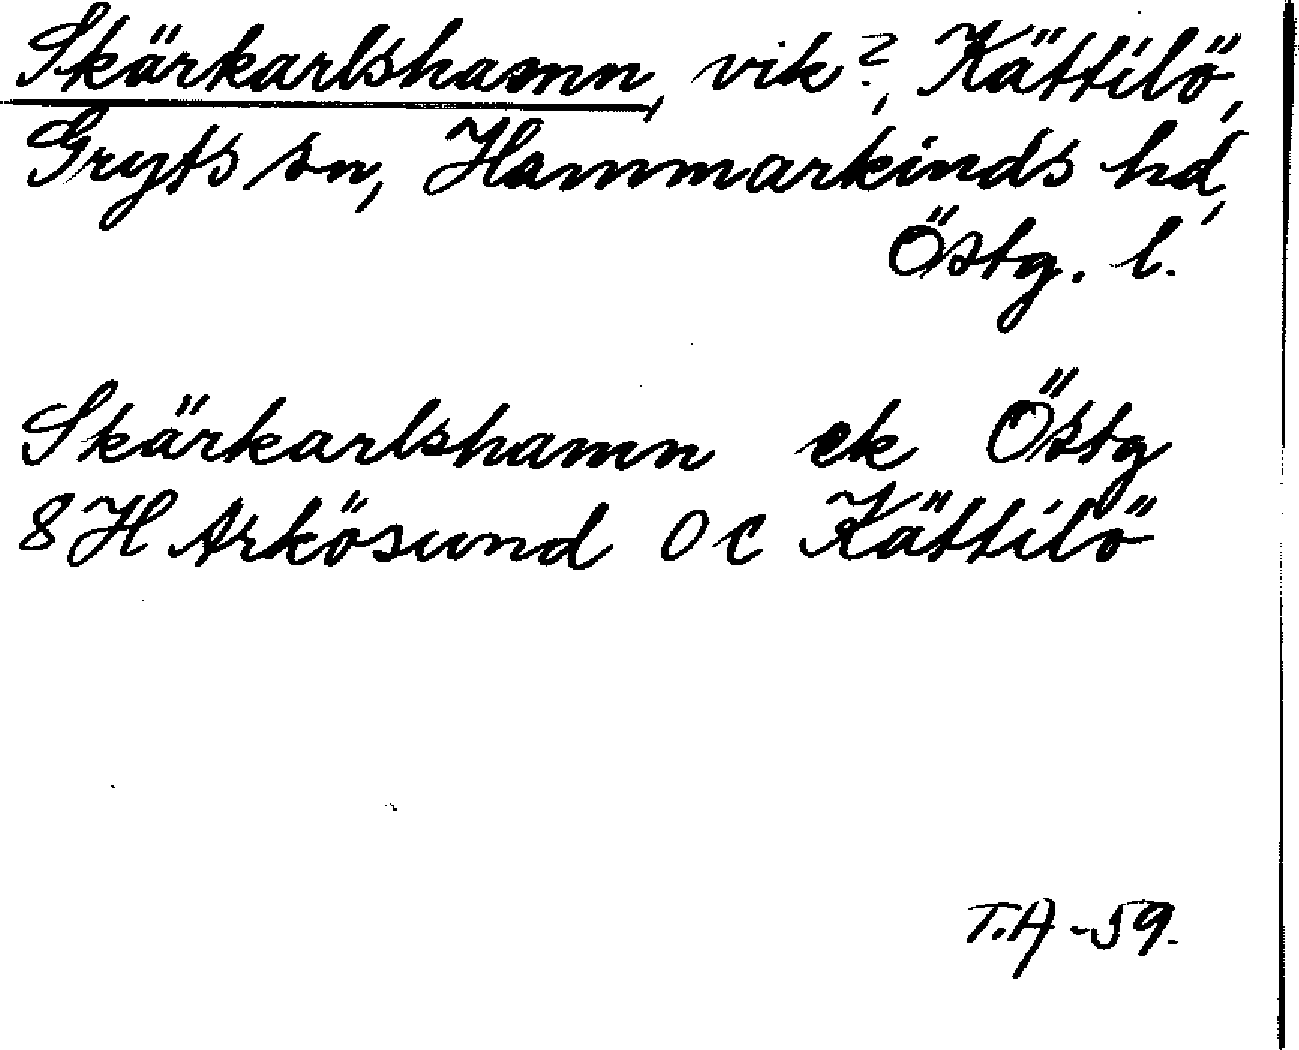 Skärkarlshamn, vik?, Kättilö,
Gryts sn, Hammarkinds hd,
Östg. l.
Skärkarlshamn ek Östg
8H Arkösund 0c Kättilö
T.A -59.